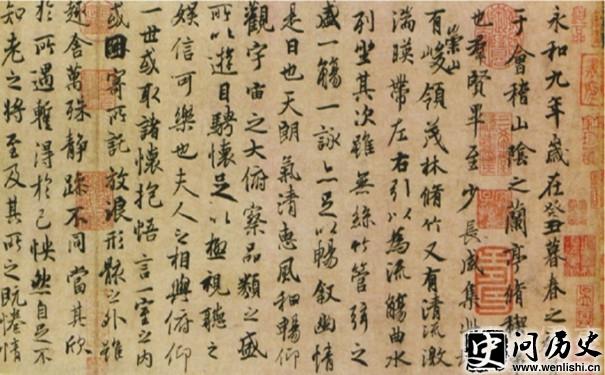 永和九年歲在癸丑暮春之
于會稽山陰之蘭亭脩禊
也羣賢畢至少長咸集此
崇山
有峻領茂林脩竹又有清流激
湍暎帶左右引以為流觴曲水
列坐其次雖無絲竹管弦之
盛一觴一詠亦足以暢敘幽情
是日也天朗氣清惠風和暢仰
觀宇宙之大俯察品類之盛
所以遊目騁懷足以極視聽之
娛信可樂也夫人之相與俯仰
一世或取諸懷抱悟言一室之內
或因寄所託放浪形骸之外雖
趣舍萬殊靜躁不同當其欣
於所遇暫得於己怏然自足不
知老之將至及其所之既惓情
史问历史
www.wenlishi.cn